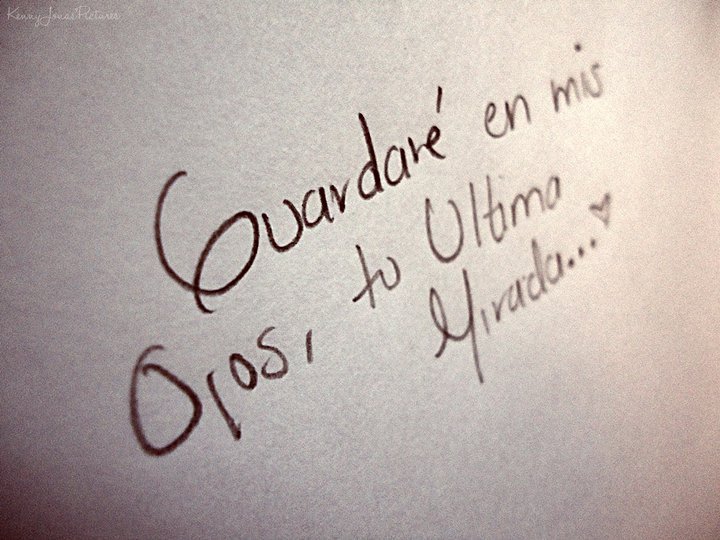 Kenny Jonas Pictures
Guardaré en mis
Ojos, tu Ultima
Mirada...♥